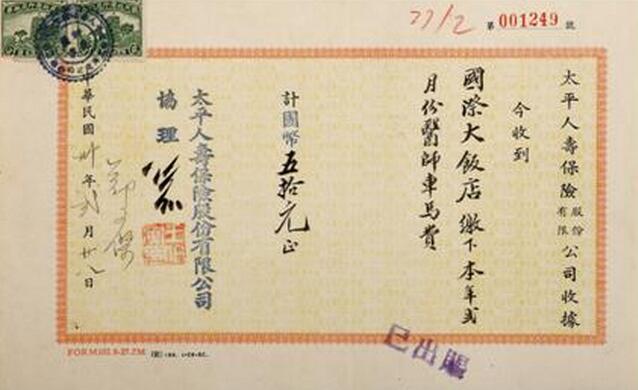 27/2
第 001249 號
太平人壽保險股份有限公司收據
今收到
國際大飯店 繳下本年弍
月份醫師車馬費
計國幣 五拾元正
太平人壽保險股份有限公司
協理
中華民國卅年弍月廿八日
已出賬
FORM102.9-27.2M